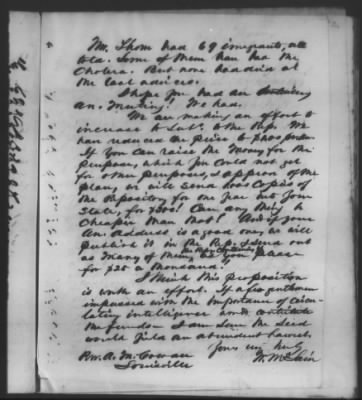 Mr. Thom had 69 imegrants, all
told. Some of them han had the
Cholera. But none had died at
the last advices.
I hope you had an
An. Meeting! We had.
We are making an effort to
increase to Subs. to the Rep. We
han reduced the price to
If You can raise the Money for the
purpose, which you could not get
for other purposes, & approve of the
plan, we will send 1000 Copies of
the Repository for one Year into Your
State, for $500! Can any thing be
Cheaper than that! And if your
An. Address is a good one, we will
publish it in the Rep. & send out
as many of them, as You please
for $20 a thousand.
I think this proposition
is worth an effort. If a few gentlemen
impressed with the importance of circu-
lating intelligence would contribute
the funds— I am sure the Seed
would yield an abundant harvest.
Yours very truly
W. McLain
Rev. A. M. Cowan
Louisville